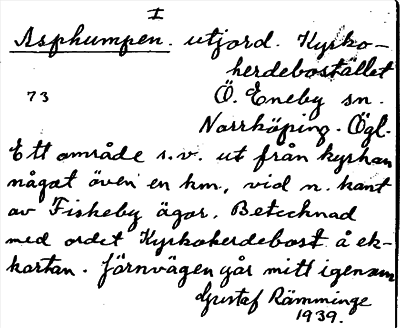 I
Asphumpen. utjord. Kyrko-
herdebostället
73 Ö. Eneby sn.
Norrköping. Ögl.
Ett område s.v. ut från kyrkan
något över en km., vid n. kant
av Fiskeby ägor. Betecknad
med ordet Kyrkoherdebost. å ek-
kartan. Järnvägen går mitt igenom
Gustaf Rämminge
1939.